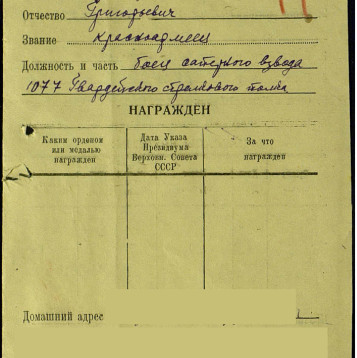 Отчество Григорьевич
Звание красноармеец
Должность и часть боец саперного взвода
1077 Гвардейского стрелкового полка
НАГРАЖДЕН
Каким орденом или медалью награжден
Дата Указа Президиума Верховн. Совета СССР
За что награжден
Домашний адрес